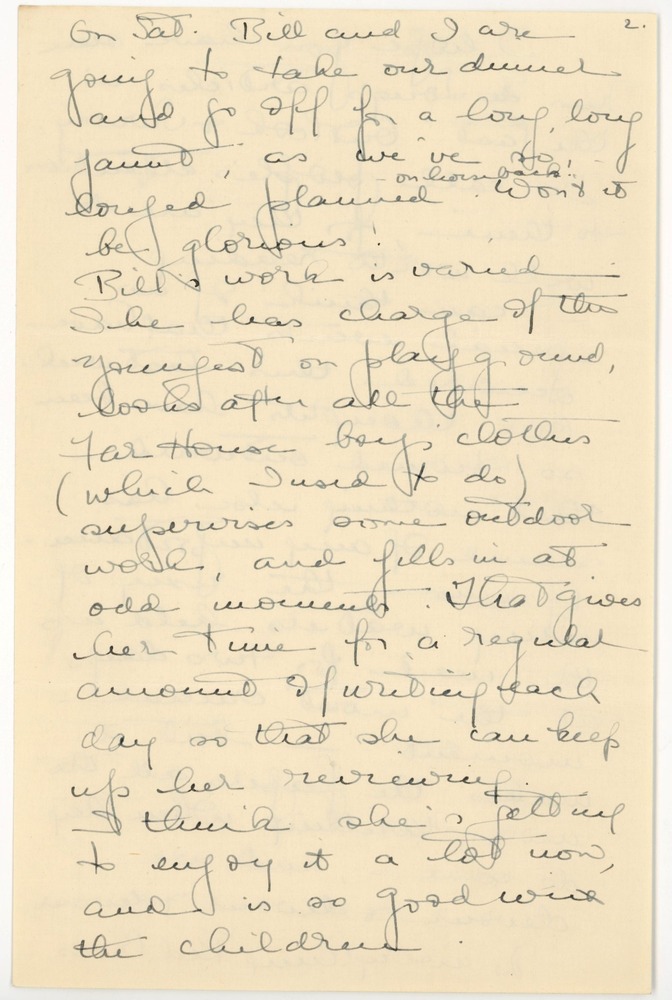 2.
On Sat. Bill and I are
going to take our dinner
and go off for a long, long
jaunt, as we've so
on horseback!
longed planned. Won't it
be glorious!
Bill's work is varied
She has charge of the
youngest on playground,
looks after all the
Far House boys clothes
(which I used to do)
supervises some outdoor
work, and fills in at
odd moments. That gives
her time for a regular
amount of writing each
day so that she can keep
up her reviewing.
I think she's getting
to enjoy it a lot now,
and is so good with
the children.